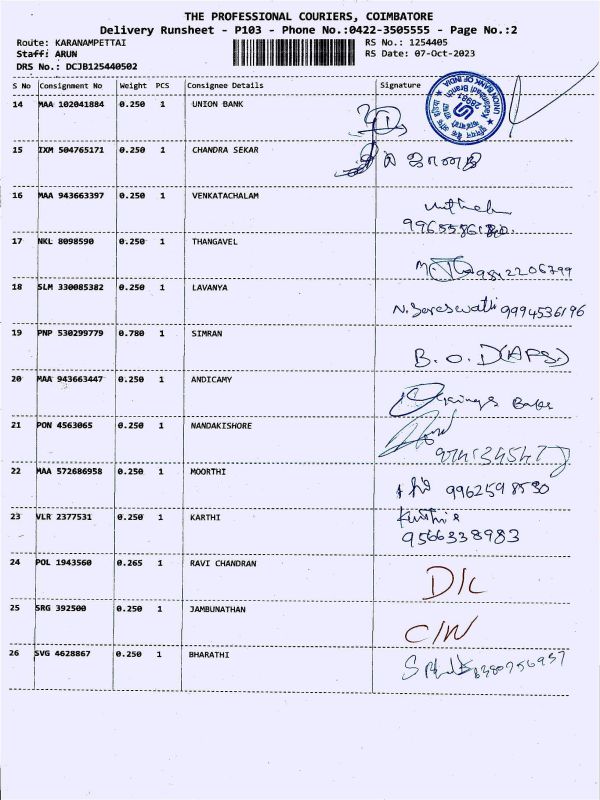 THE PROFESSIONAL COURIERS, COIMBATORE
Delivery Runsheet - P103 - Phone No.:0422-3505555 - Page No.:2
Route: KARANAMPETTAI RS No.: 1254405
Staff: ARUN RS Date: 07-Oct-2023
DRS No.: DCJB125440502
S No Consignment No Weight PCS Consignee Details Signature
14 MAA 102041884 0.250 1 UNION BANK
UNION BANK OF INDIA
15 IXM 504765171 0.250 1 CHANDRA SEKAR
16 MAA 943663397 0.250 1 VENKATACHALAM
17 NKL 8098590 0.250 1 THANGAVEL 9842206799
18 SLM 330085382 0.250 1 LAVANYA N. Saraswathi 9994536196
19 PNP 530299779 0.780 1 SIMRAN B. O. D (APS)
20 MAA 943663447 0.250 1 ANDICAMY
21 PON 4563065 0.250 1 NANDAKISHORE
22 MAA 572686958 0.250 1 MOORTHI 9962598530
23 VLR 2377531 0.250 1 KARTHI
9566338983
24 POL 1943560 0.265 1 RAVI CHANDRAN D/L
25 SRG 392500 0.250 1 JAMBUNATHAN C/W
26 SVG 4628867 0.250 1 BHARATHI 6380756957